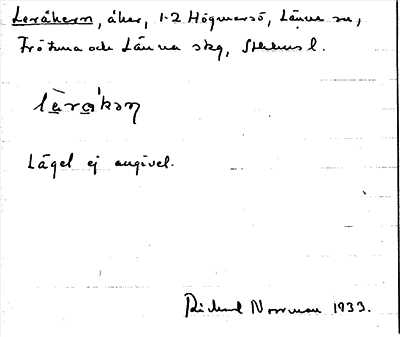 Leråkern, åker, 1-2 Högmarsö, Länna sn,
Frötuna och Länna skg, Sthlms l.
lèråkəɳ
Läget ej angivet.
Rickard Norrman 1933.